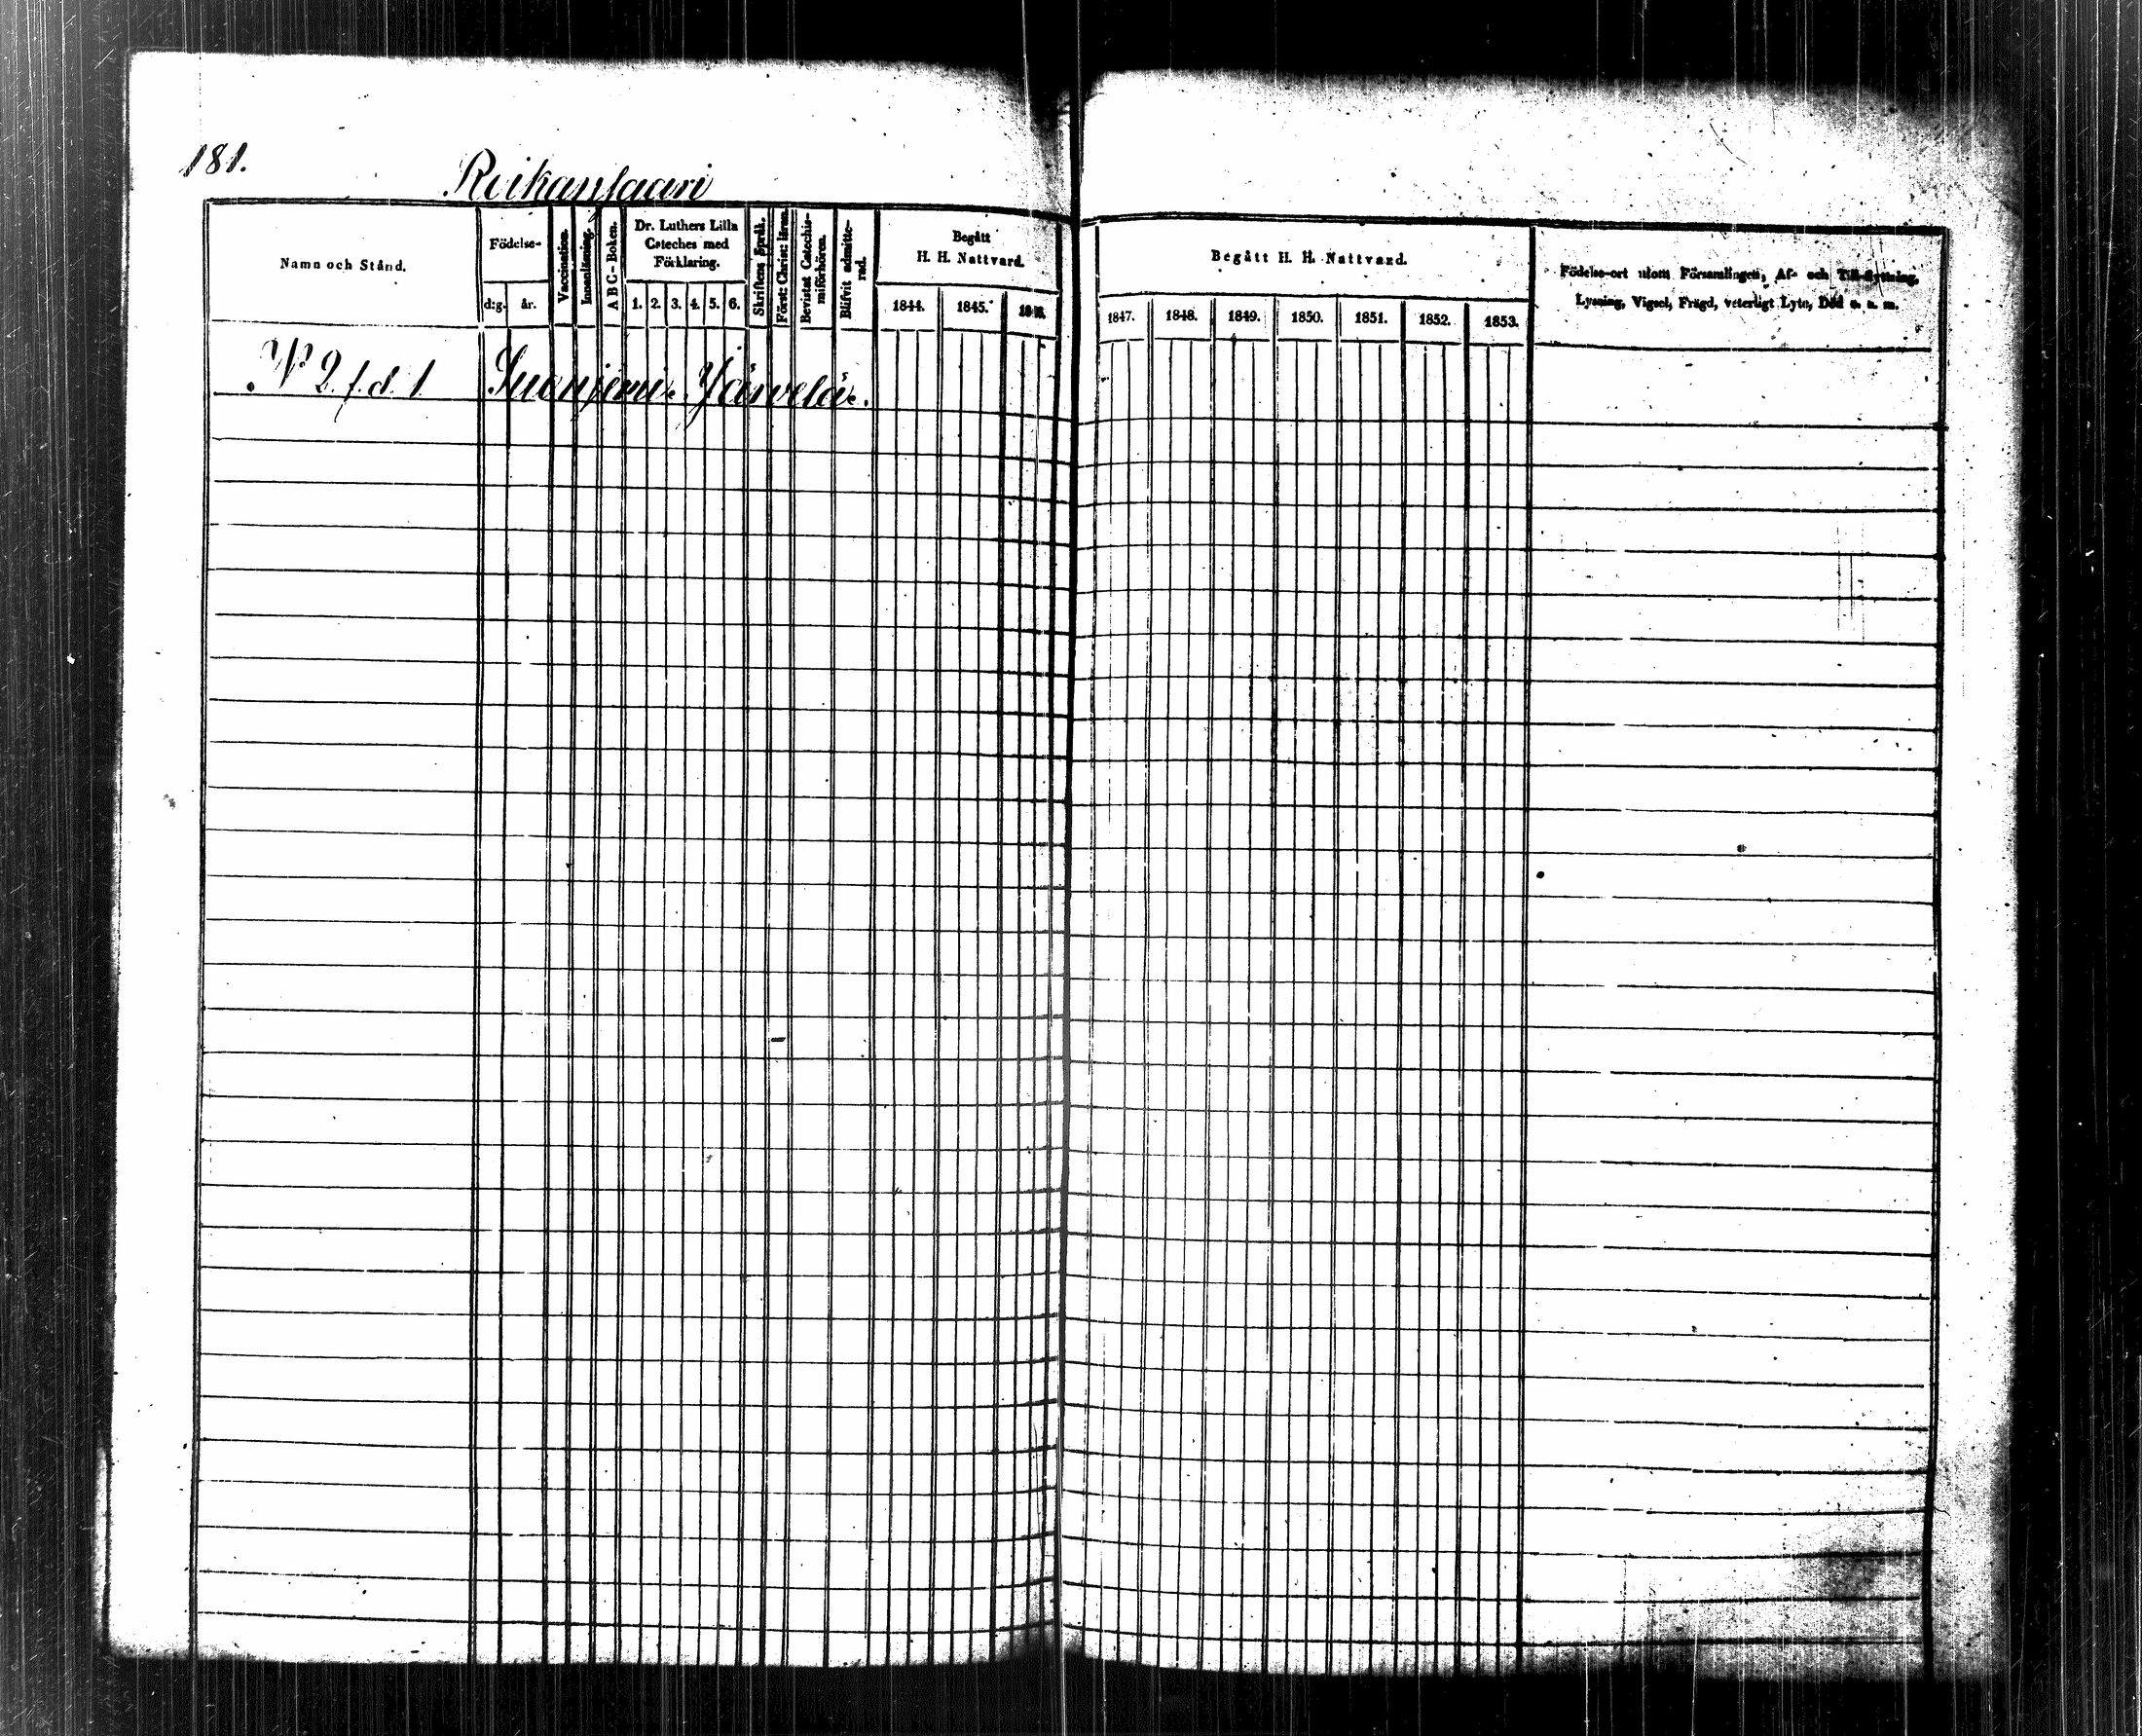 181.
Reikansaari
Namn och Stånd.
Födelse-
d:g.
år.
Vaccination.
Innanläsning.
A B C - Boken.
Dr. Luthers Lilla
Cateches med
Förklaring.
1. 2. 3. 4. 5. 6.
Skriftens Språk.
Först: Christ: läran.
Bevistat Catechis-
miförhören.
Blifvit admitte-
rad.
Begått
H. H. Nattvard.
1844. 1845. 1846.
Begått H. H. Nattvard.
1847. 1848. 1849. 1850. 1851. 1852. 1853.
Födelse-ort utom Församlingen, Af- och Till-flyttning,
Lysning, Vigsel, Frägd, veterligt Lyte, Död o. s. m.
N 2 f.d. 1 Suonjemi Järvelä.